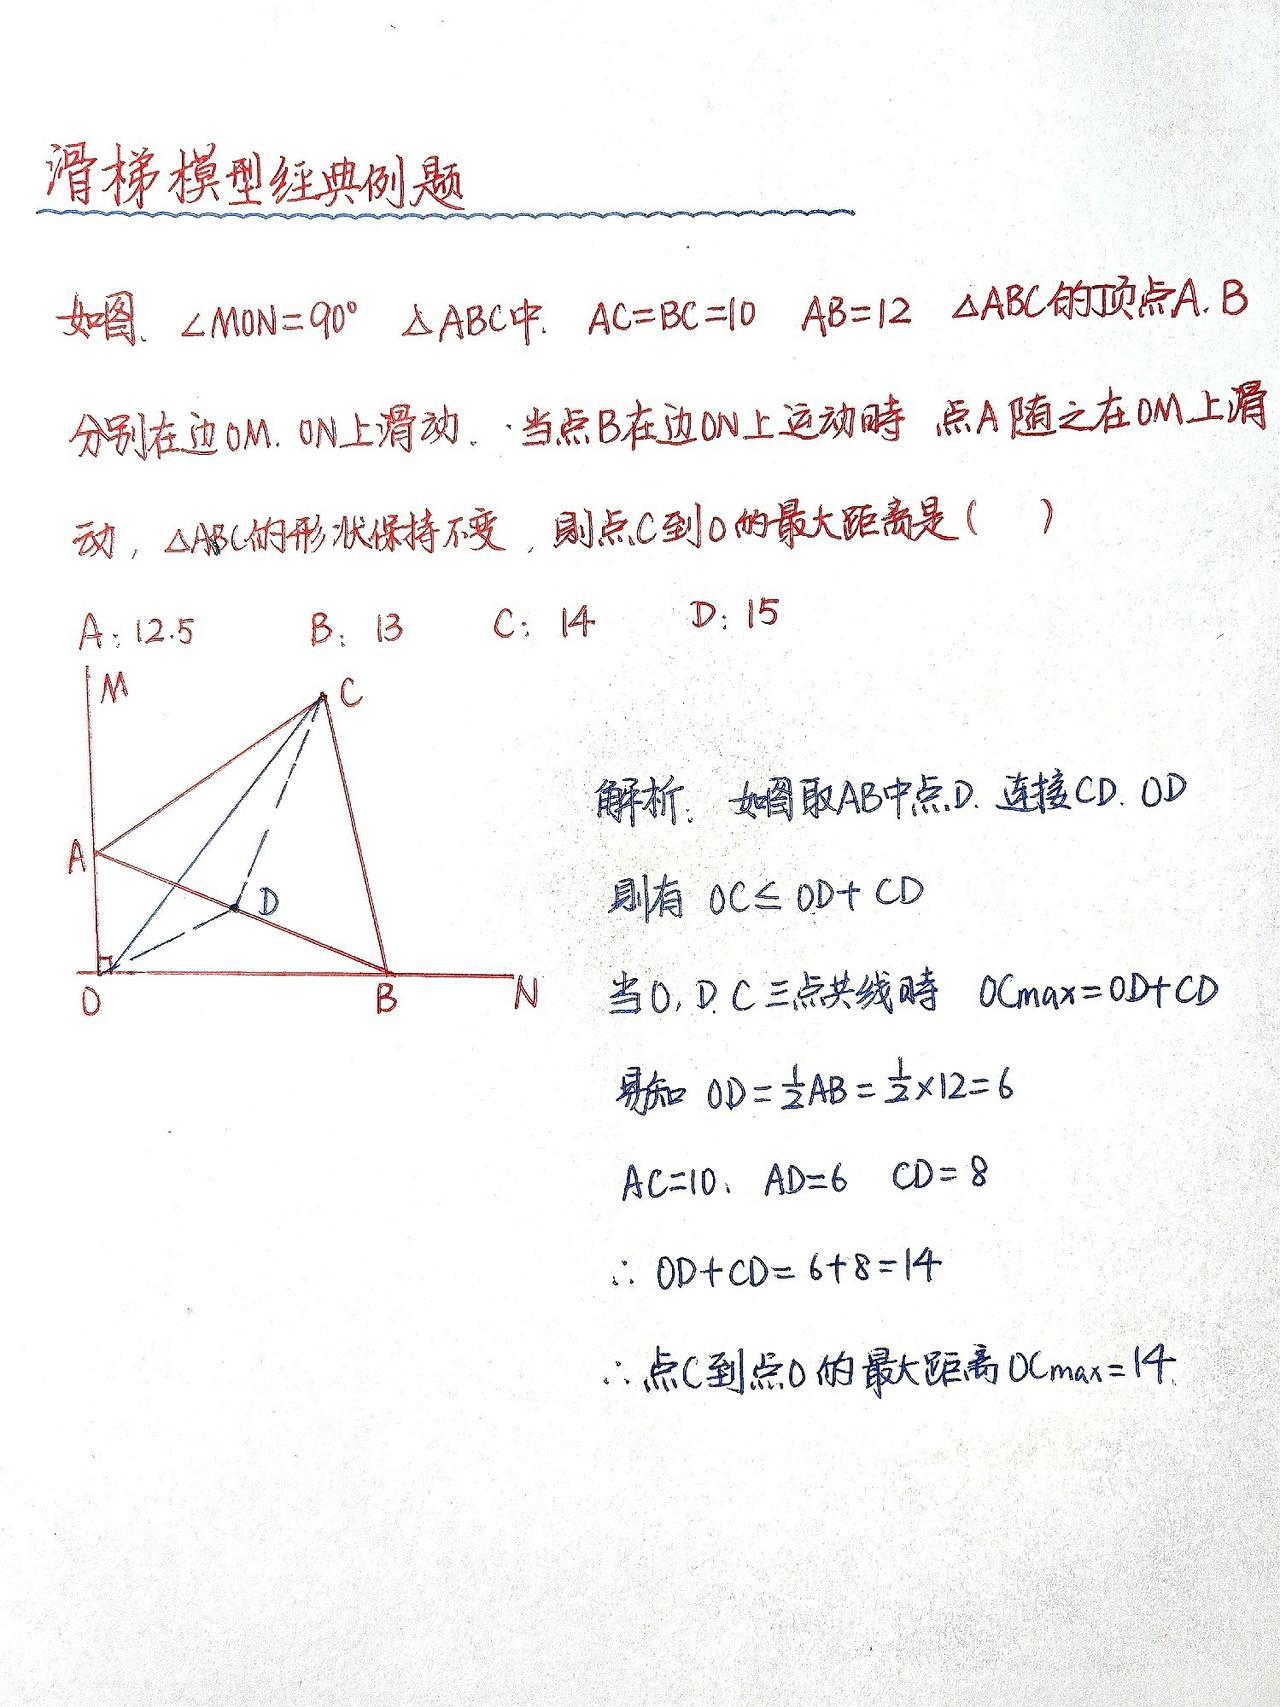 滑梯模型经典例题
如图. ∠MON=90° △ABC中. AC=BC=10 AB=12 △ABC的顶点A.B
分别在边OM. ON上滑动. 当点B在边ON上运动时 点A随之在OM上滑
动, △ABC的形状保持不变, 则点C到O的最大距离是( )
A: 12.5 B: 13 C: 14 D: 15
M
C
A
D
O
B
N
解析: 如图取AB中点D. 连接CD. OD
则有 OC≤OD+CD
当O, D. C三点共线时 OCmax=OD+CD
易知 OD=½AB=½×12=6
AC=10. AD=6 CD=8
∴ OD+CD=6+8=14
∴点C到点O的最大距离OCmax=14.